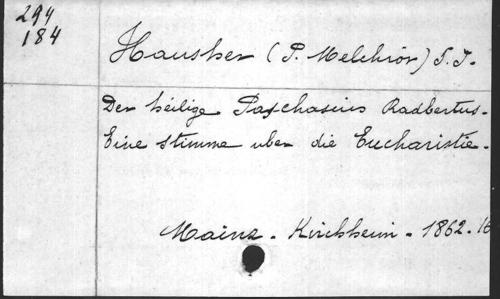 294
184
Hausher (P. Melchior) S. J.
Der heilige Paschasius Radbertus.
Eine stimme uber die Eucharistie.
Mainz - Kirchheim - 1862. 16